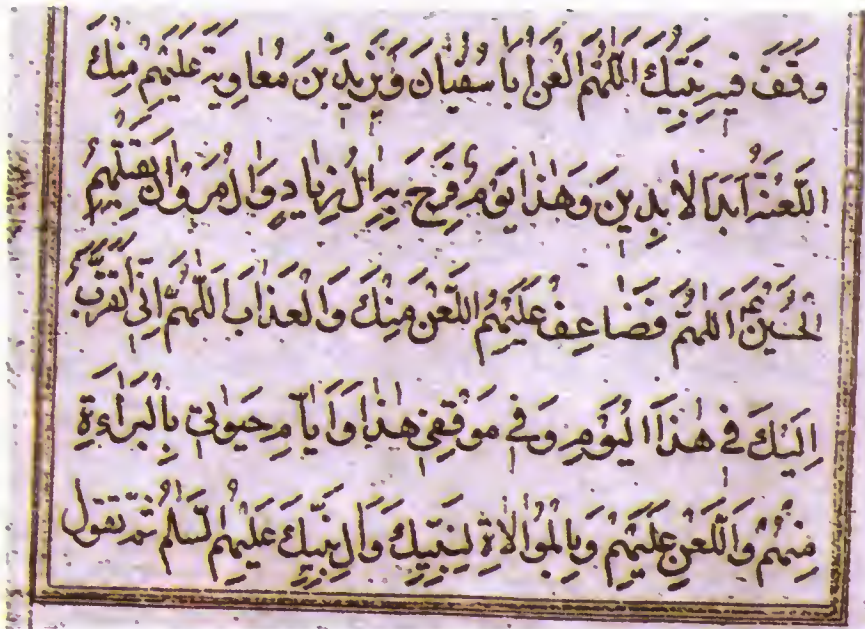 وَقَفَ فِيهِ نَبِيُّكَ اَللّٰهُمَّ الْعَنْ اَبَا سُفْيَانَ وَيَزِيدَ بْنَ مُعَاوِيَةَ عَلَيْهِمْ مِنْكَ
اللَّعْنَةُ اَبَدَ الْاٰبِدِينَ وَهٰذَا يَوْمٌ فَرِحَ بِهِ اٰلُ زِيَادٍ وَاٰلُ مَرْوَانَ بِقَتْلِهِمُ
الْحُسَيْنَ اَللّٰهُمَّ فَضَاعِفْ عَلَيْهِمُ اللَّعْنَ مِنْكَ وَالْعَذَابَ اَللّٰهُمَّ اِنِّي اَتَقَرَّبُ
اِلَيْكَ فِي هٰذَا الْيَوْمِ وَفِي مَوْقِفِي هٰذَا وَاَيَّامِ حَيٰوتِي بِالْبَرَاءَةِ
مِنْهُمْ وَاللَّعْنِ عَلَيْهِمْ وَبِالْمُوَالَاةِ لِنَبِيِّكَ وَاٰلِ نَبِيِّكَ عَلَيْهِمُ لسَّلَامُ ثُمَّ تَقُول